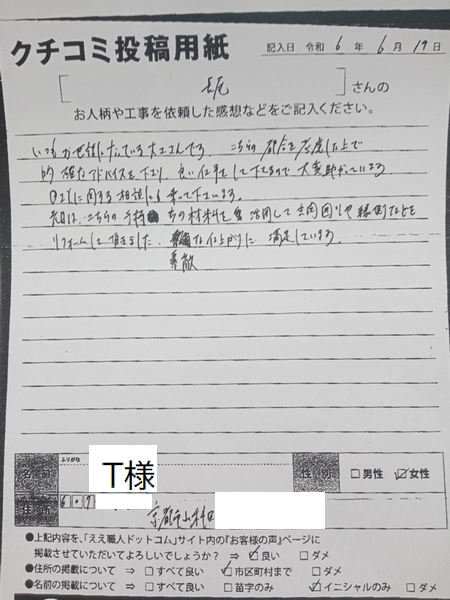 クチコミ投稿用紙
記入日 令和 6 年 6 月 19 日
[ 長尾 ] さんの
お人柄や工事を依頼した感想などをご記入ください。
いつもお世話になっている大工さんです。こちらの都合を考慮した上で
的確なアドバイスを下さり、良い仕事をして下さるので大変助かっています。
DIYに関する相談にも乗って下さいます。
先日は、こちらの手持ちの材料を活用して玄関回りや縁側などを
リフォームして頂きました。素敵な仕上がりに満足しています。
素敵
ふりがな
お名前
T様
性別
□男性 ☑女性
住所
6 0 7
京都市山科区
●上記内容を、「ええ職人ドットコム」サイト内の「お客様の声」ページに
掲載させていただいてよろしいでしょうか？ ⇒ ☑良い □ダメ
●住所の掲載について ⇒ □すべて良い ☑市区町村まで □ダメ
●名前の掲載について ⇒ □すべて良い □苗字のみ ☑イニシャルのみ □ダメ